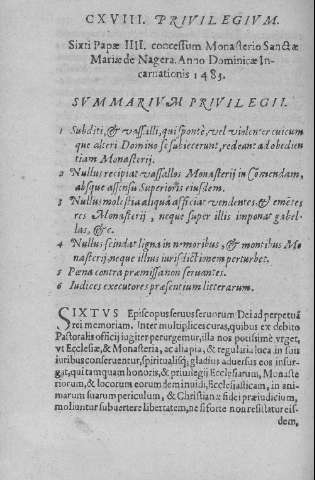 CXVIII. PRIVILEGIVM.
Sixti Papæ IIII. concessum Monasterio Sanctæ
Mariæ de Nagera. Anno Dominicæ In-
carnationis 1485.
SVMMARIVM PRIVILEGII.
1 Subditi, & vassalli, qui spontè, vel violenter cuicum
que alteri Domino se subiecerunt, redeant ad obedien
tiam Monasterij.
2 Nullus recipiat vassallos Monasterij in Comendam,
absque assensu Superioris eiusdem.
3 Nullus molestia aliqua afficiat vendentes & emẽtes
res Monasterij, neque super illis imponat gabel-
las, &c.
4 Nullus scindat ligna in nemoribus, & montibus Mo
nasterij, neque illius iurisdictionem perturbet.
5 Pœna contra præmissa non seruantes.
6 Iudices executores præsentium litterarum.
SIXTVS Episcopus seruus seruorum Dei ad perpetuã
rei memoriam. Inter multiplices curas, quibus ex debito
Pastoralis officij iugiter perurgemur, illa nos potissimè vrget,
vt Ecclesiæ, & Monasteria, ac alia pia, & regularia loca, in suis
iuribus conseruentur, spiritualisq; gladius aduersus eos insur-
gat, qui tamquam honoris, & priuilegij Ecclesiarum, Monaste
riorum, & locorum eorundem inuidi, Ecclesiasticam, in ani-
marum suarum periculum, & Christianæ fidei præiudicium,
moliuntur subuertere libertatem, ne si forte non resistatur eis-
dem,